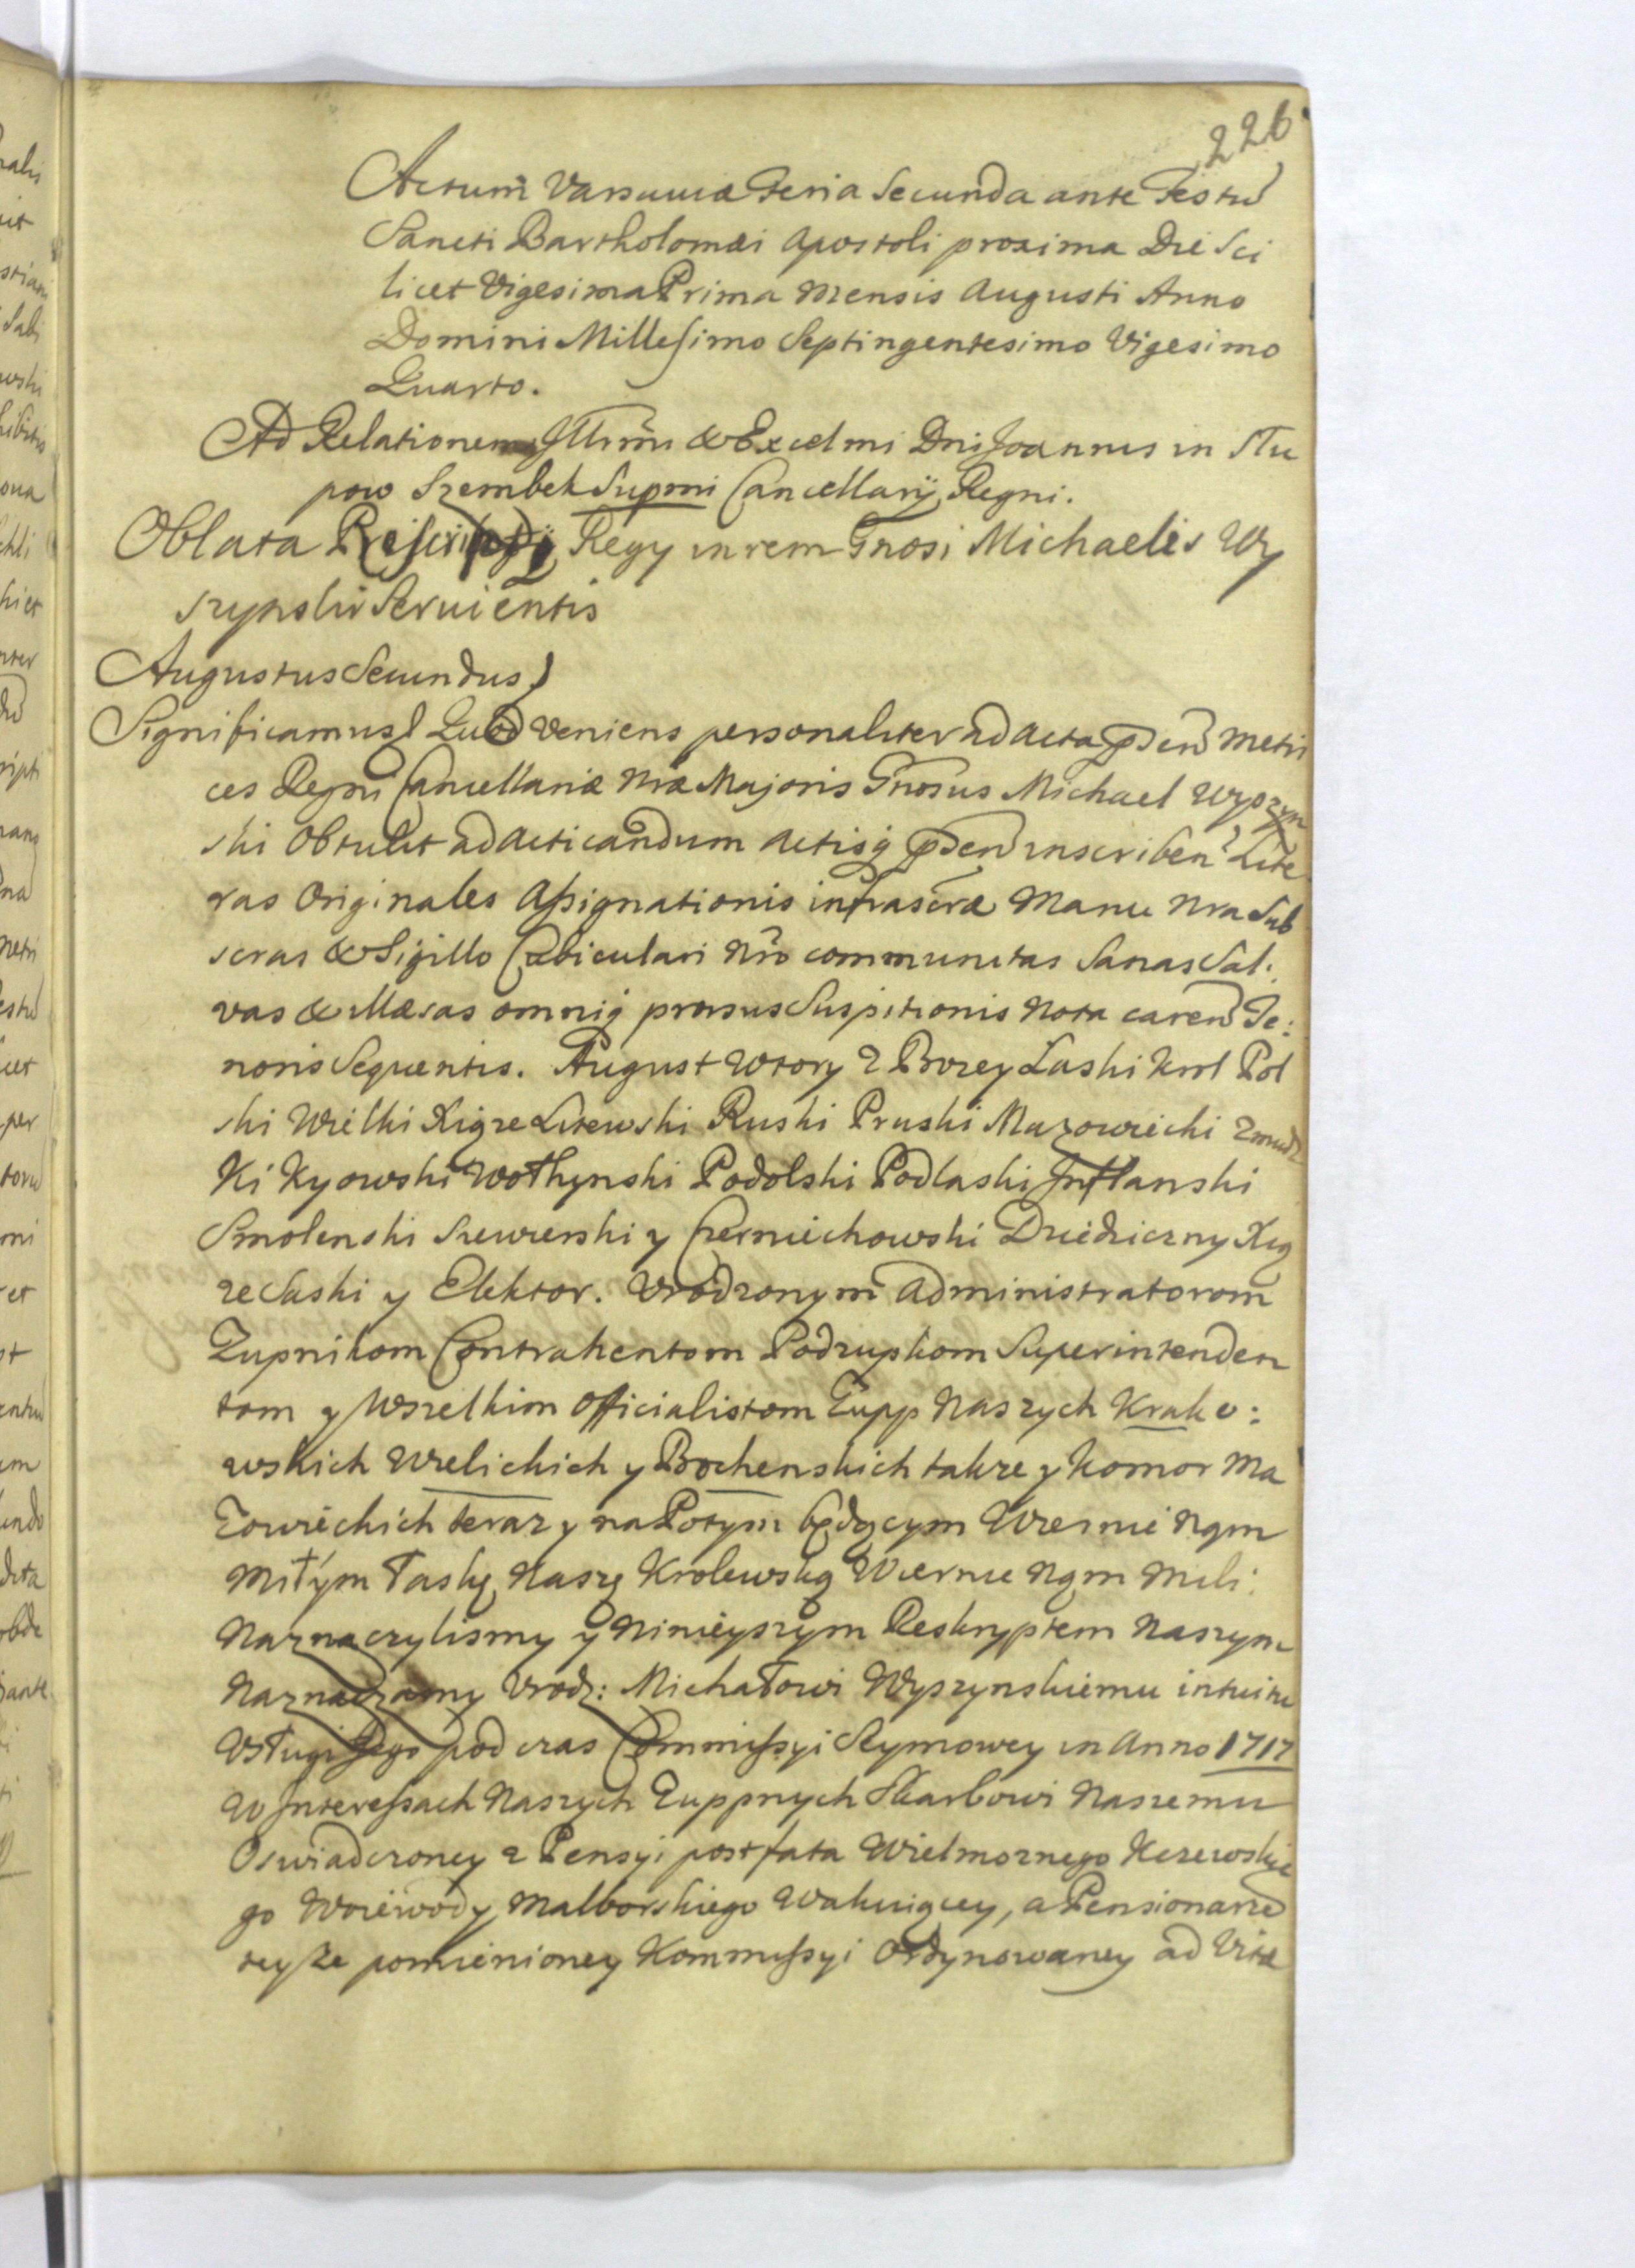 226
Actum Varsaviæ Feria Secunda ante Festũ
Sancti Bartholomæi Apostoli proxima Die Sci
licet Vigesima Prima Mensis Augusti Anno
Domini Millesimo Septingentesimo Vigesimo
Quarto.
Ad Relationem Illrmi & Excelmi Dni Joannis in Slu
pow Szembek Supmi Cancellarij Regni.
Oblata Rescripti Regij in rem Gnosi Michaelis Wy
szynski Servientis
Augustus Secundus
Significamus Quod veniens personaliter ad Acta psen Metri
ces Regni Cancellariæ Nræ Majoris Gnosus Michael Wyszyn
ski Obtulit ad Acticandum Actisq psen inscriben Lite
ras Originales Assignationis infrascræ Manu Nra Sub
scras & Sigillo Cubiculari Nro communitas Sanas Sal:
vas & illæsas omniq prorsus Suspitionis Nota caren Te:
noris Sequentis. August Wtory z Bozey Laski Krol Pol
ski Wielki Xiąze Litewski Ruski Pruski Mazowiecki Zmudz
Ki Kyowski Wołhynski Podolski Podlaski Inflanski
Smolenski Siewierski y Czerniechowski Dziedziczny Xią
ze Saski y Elektor. Vrodzonym Administratorom
Zupnikom Contrahentom Podzupkom Superintenden
tom y Wszelkim Officialistom Zupp Naszych Krako:
wskich Wielickich y Bochenskich takze y Komor Ma
zowieckich teraz y na Potym będącym Wiernie Nąm
Miłym Łaskę Naszę Krolewską Wiernie Nąm Mili:
Naznaczylismy y Ninieyszym Reskryptem Naszym
Naznaczamy Vrodz: Michałowi Wyszynskiemu intuitu
Vsługi Jego pod czas Commissyi Seymowey in Anno 1717
W Interessach Naszych Zuppnych Skarbowi Naszemu
Oswiadczoney z Pensyi post fata Wielmoznego Kczewskie
go Woiewody Malborskiego Wakuiącey, a Pensionarze
teyze pomienioney Kommissyi Ordynowaney ad Vitæ